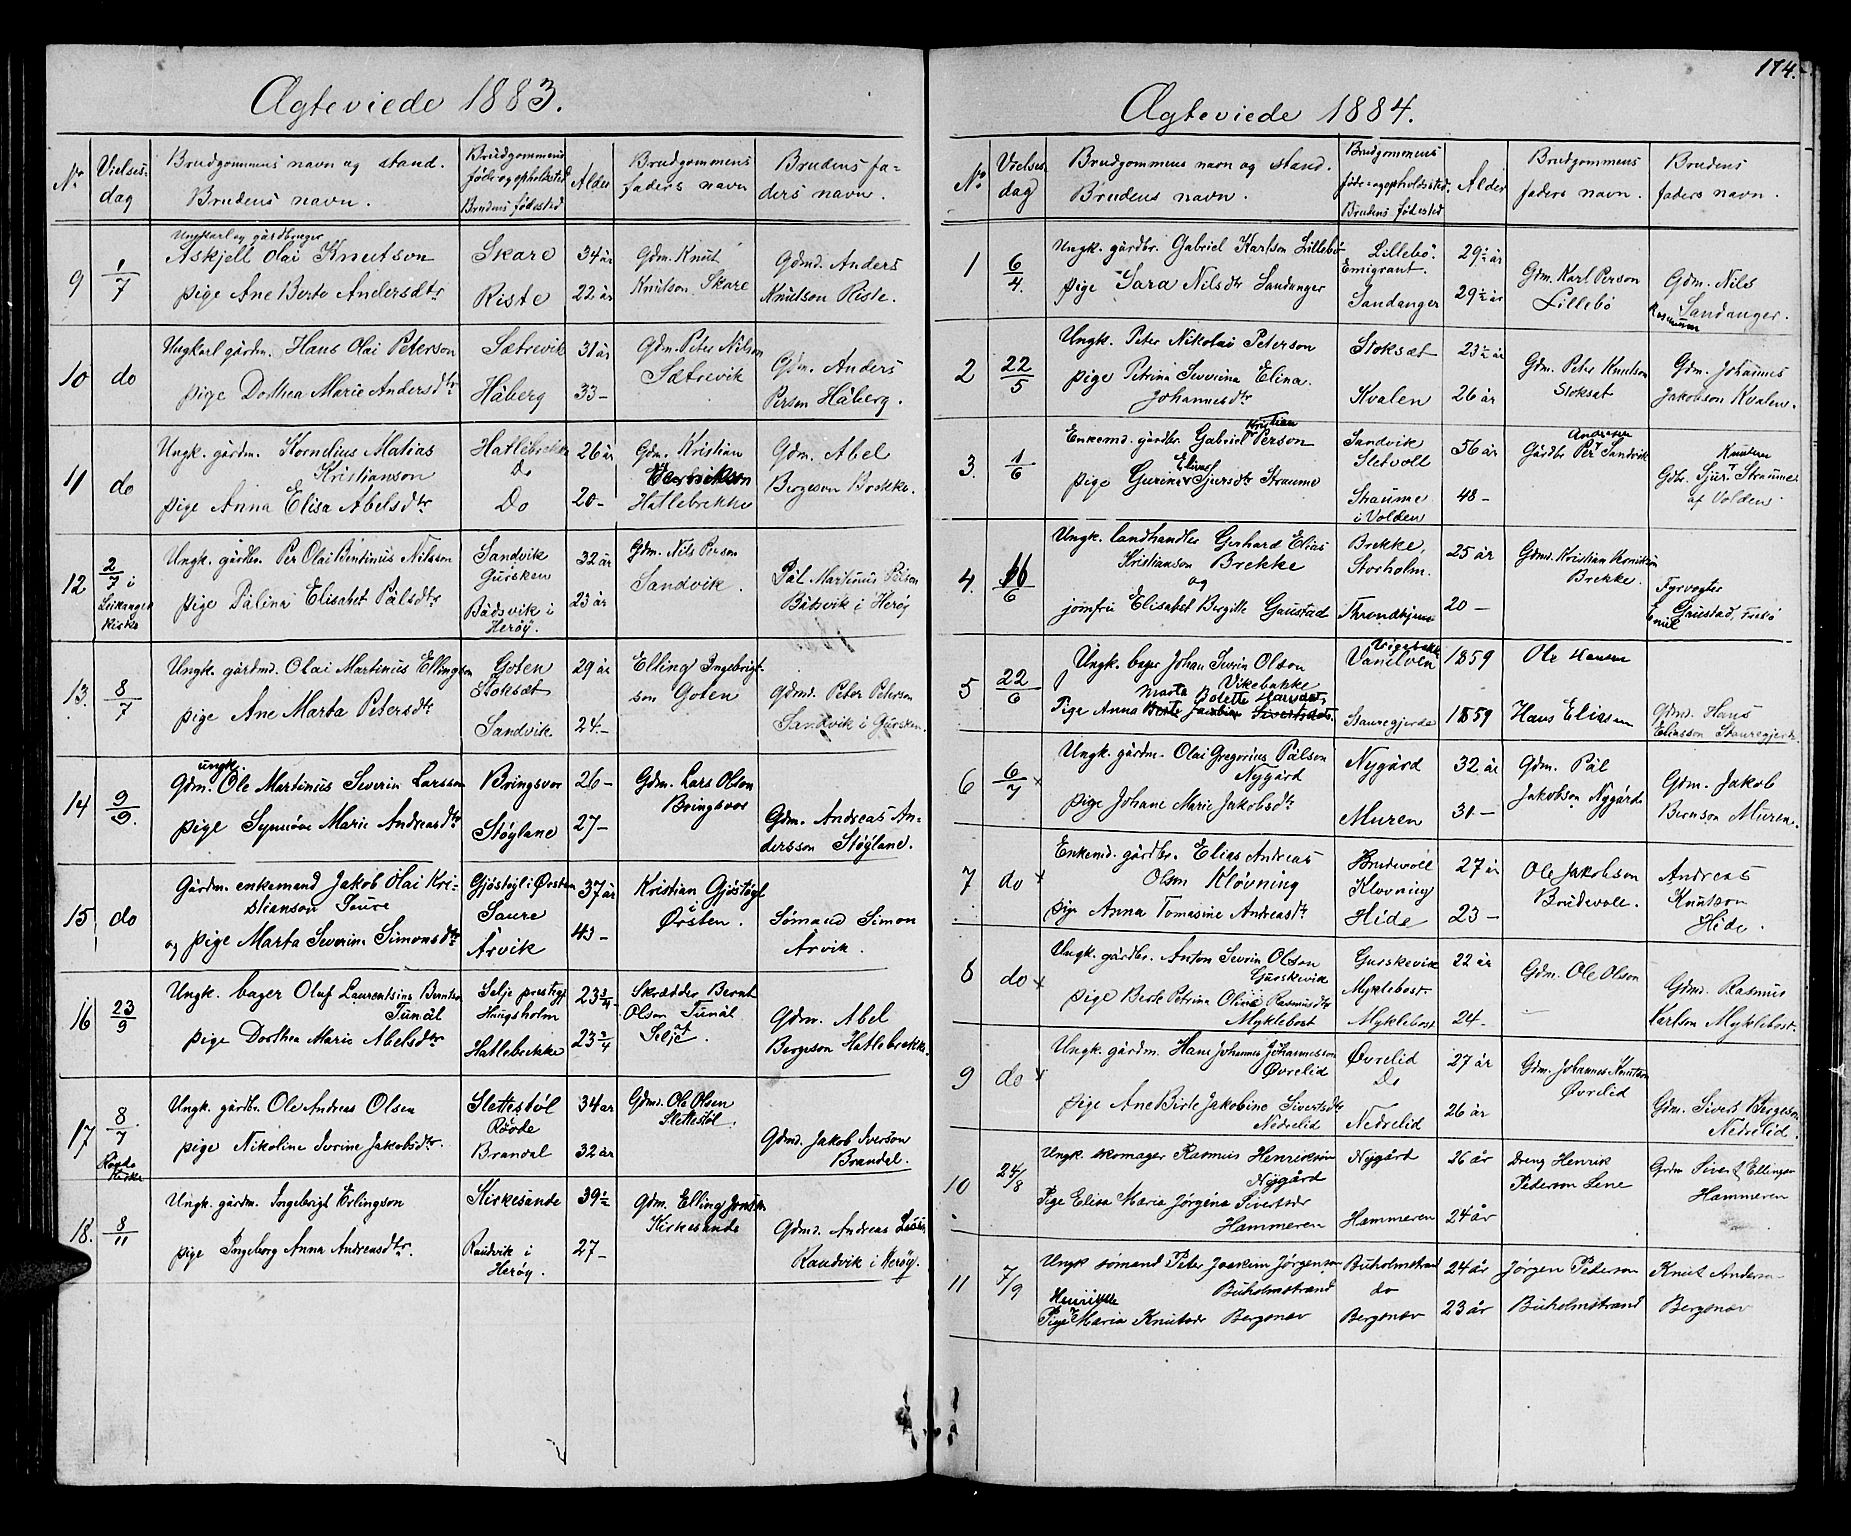 174.
Ægteviede 1883.
No. Vielses- dag Brudgommens navn og stand. Brudens navn. Brudgommens føde og opholdssted Brudens fødested Alder Brudgommens faders navn Brudens fa- ders navn.
Ungkarl og gårdbruger
9 1/7 Askjell Olai Knutson Skare 34 år Gdm. Knut Knutson Skare Gdmd. Anders
pige Ane Berte Andersdtr Riste 22 år Knutson Riste.
10 do Ungkarl gårdm. Hans Olai Peterson Sætrevik 31 år Gdm. Peter Nilson Sætrevik Gdm. Anders
pige Dorthea Marie Andersdtr Håberg 33 - Person Håberg.
11 do Ungk. gårdm. Kornelius Matias Kristianson Hatlebrekke Do 26 år Gdm. Kristian Hatlebrekke Gdm. Abel
pige Anna Elisa Abelsdtr Do 20 - Bergeson
12 2/7 i Leikanger kirke Ungk. gårdbr. Per Olai Bentinus Nilsson Sandvik Gursken 32 år Gdm. Nils Person Sandvik. Pål Martinus Pålson
pige Pålina Elisabet Pålsdtr Bådsvik i Herøy. 23 år Båtsvik i Herøy
13. 8/7 Ungk. gårdmd. Olai Martinus Ellingson Goten Stoksæt 29 år Elling Ingebrigt- son Goten Gdmd. Peter Peterson
pige Ane Marta Petersdtr Sandvik 24 - Sandvik i Gursken.
ungk.
14 9/9. Gdm. Ole Martinus Severin Larsson Bringsvor 26 - Gdm. Lars Olson Bringsvor Gdm. Andreas An-
pige Synnøve Marie Andreasdtr Støyland 27 - dersson Støyland.
15 do Gårdm. enkemand Jakob Olai Kri- stianson Saure Gjøstøyl i Ørsten Saure 37 år Kristian Gjøstøyl i Ørsten. Sømand Simon
og pige Marta Severine Simonsdtr Årvik 43 - Årvik.
16 23/9 Ungk. bager Oluf Laurentsius Berntson Tunål Selje prestegj Haugsholm 23 3/4 Skrædder Bernt Olsen Tunål af Selje. Gdm. Abel
pige Dorthea Marie Abelsdtr Hatlebrekke 23 3/4 Bergeson Hatlebrekke.
17 8/7 Røvde Kirke Ungk. gårdbr. Ole Andreas Olsen Slettestøl Røvde 34 år Gdmd. Ole Olsen Slettestøl. Gdmd. Jakob Iverson
pige Nikoline Ivrine Jakobsdtr. Brandal 32 år Brandal.
18. 8/11 Ungk. gårdm. Ingebrigt Erlingson Kirkesande 39 1/2 Gdm. Elling Jonson Kirkesande Gdmd. Andreas
pige Ingeborg Anna Andreasdtr. Raudvik i Herøy. 27 - Raudvik i Herøy.
Ægteviede 1884.
No. Vielses- dag Brudgommens navn og stand. Brudens navn. Brudgommens føde- og opholdssted. Brudens fødested Alder Brudgommens faders navn. Brudens faders navn.
1 6/4. Ungk. gårdbr. Gabriel Karlson Lillebø Lillebø. Emigrant. 29 1/2 år Gdm. Karl Person Lillebø Gdm. Nils
pige Sara Nilsdtr Sandanger Sandanger 29 1/2 år Rasmusson Sandanger.
2 22/5 Ungk. Peter Nikolai Peterson Stoksæt 23 1/2 år Gdm. Peter Knutson Stoksæt Gdm. Johannes
pige Petrina Severina Elina Johannesdtr Kvalen 26 år Jakobson Kvalen.
3. 1/6 Enkemd. gårdbr. Gabriel Kristian Person Sandvik Sletvoll 56 år Gårdbr Per Andersen Sandvik
pige Gurine Elias Sjursdtr Straume Straume i Volden 48 - Gdbr. Sjur Knutsen Straume af Volden
4. 16/6 Ungk. landhandler Gerhard Elias Kristianson Brekke Brekke, Storholm. 25 år Gdmd. Kristian Brekke.
og
jomfru Elisabet Bergitte Gaustad Throndhjem 20 - Fyrvogter Emil Gaustad,
5 22/6 Ungk. bager Johan Sevrin Olson Vikebakke Vanelven 1859 Ole Hansen
Pige Anna Marta Bolette Hansdat. Stauregjerde 1859 Hans Eliassen Gdmd. Hans Eliasson Stauregjerde
6 6/7 x Ungk. gårdm. Olai Gregorius Pålson Nygård Nygård 32 år Gdm. Pål Jakobson Nygård Gdm. Jakob
pige Johane Marie Jakobsdtr Muren 31 - Bernson Muren.
7 do x Enkemd. gårdbr. Elias Andreas Olsen Kløvning Brudevoll Kløvning 27 år Ole Jakobson Brudevoll. Andreas
pige Anna Tomasine Andreasdtr Hide 23 - Knutson Hide.
8 do x Ungk. gårdbr. Anton Sevrin Olson Gurskevik Gurskevik Myklebost 22 år Gdm. Ole Olson Gdmd. Rasmus
pige Berte Petrina Olivia Rasmusdtr Myklebost Myklebost 24 - Karlson Myklebost.
9 do x Ungk. gårdm. Hans Johannes Johannesson Øvrelid Øvrelid Do 27 år Gdm. Johannes Knutson Øvrelid
pige Ane Birte Jakobine Sivertsdtr Nedrelid Nedrelid 26 år Gdm. Sivert Bergeson Nedrelid.
10 24/8 Ungk. skomager Rasmus Henrikson Nygård Nygård 26 år Dreng Henrik Pederson Lene Grdm Sivert Ellingsen
Pige Elisa Maria Jørgina Sivertsdr Hammeren Hammeren 24 år Hammeren
11 7/9 Ungk sømand Peter Joakim Jørgenson Buholmstrand Buholmstrand do 24 år Jørgen Pederson Knut Anderson
Pige Henrikke Maria Knutsdr Bergsnev Bergsnev 23 år Buholmstrand Bergsnev